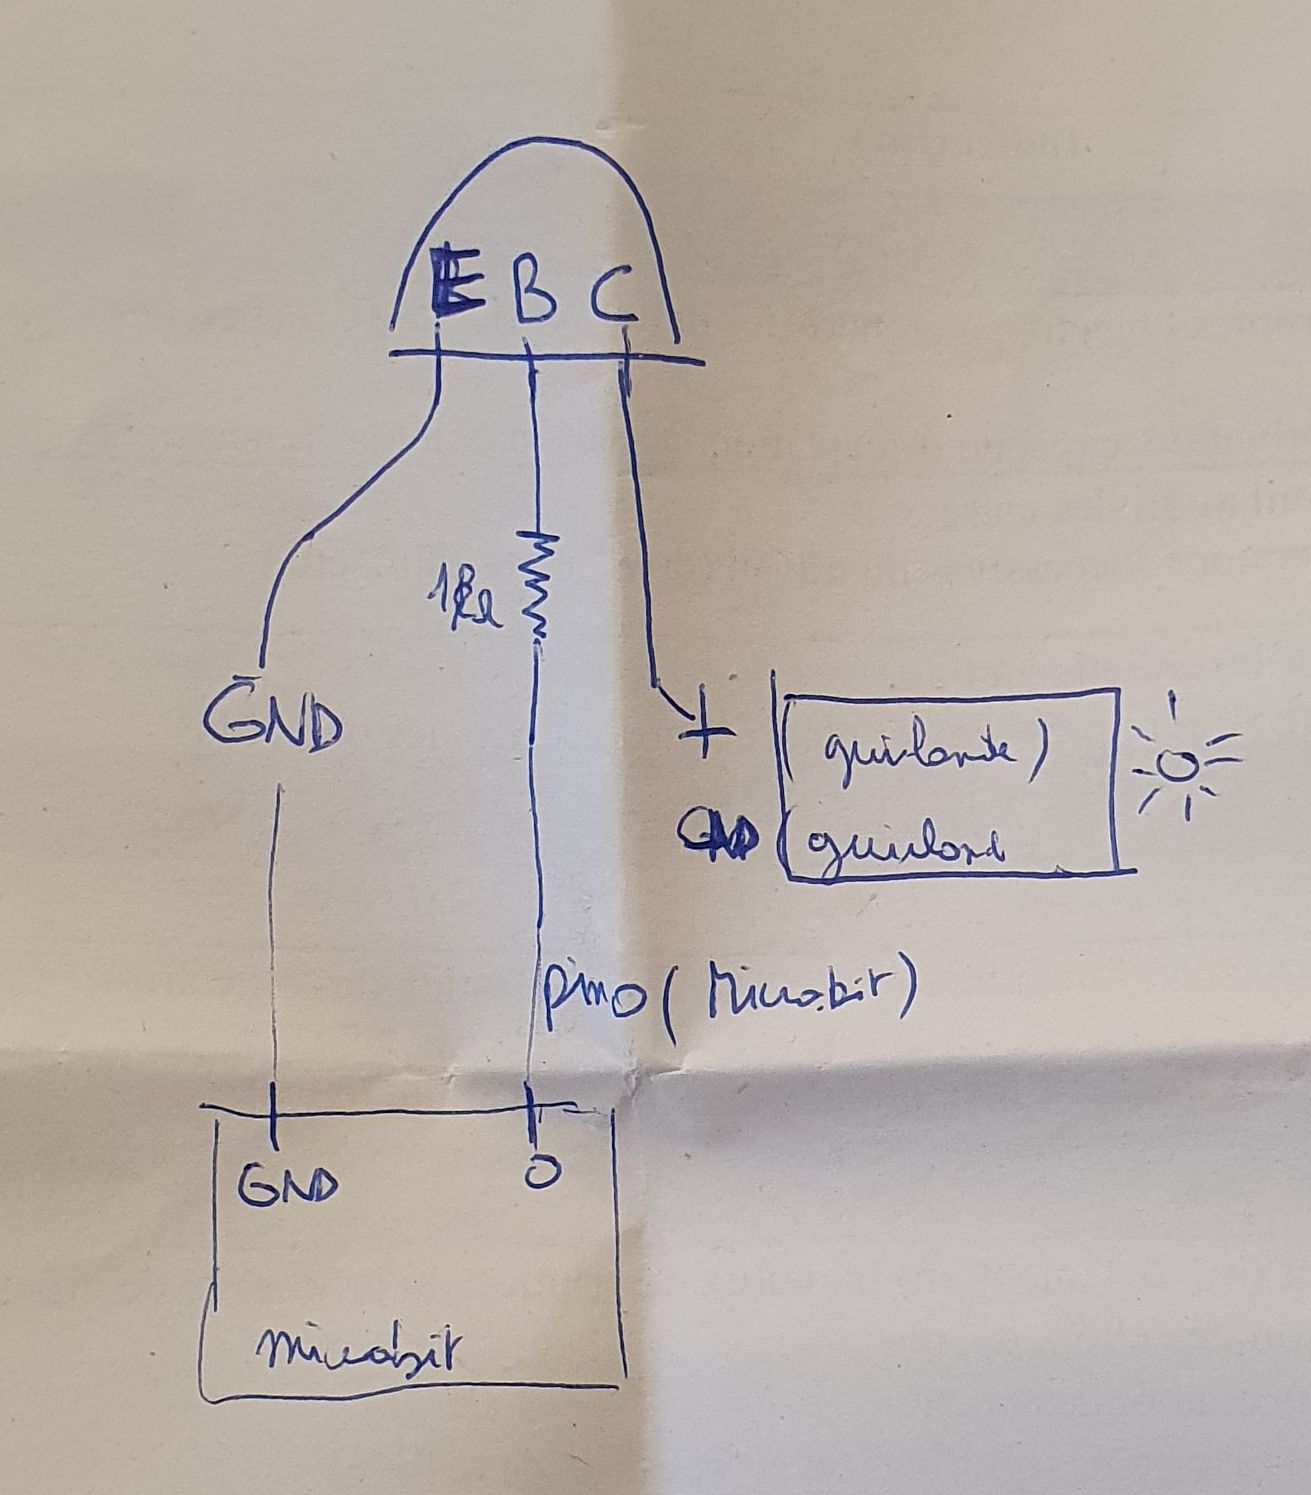 E B C
1kΩ
GND
+ (guirlande)
GND (guirlande
Pin0 (Microbit)
GND 0
microbit